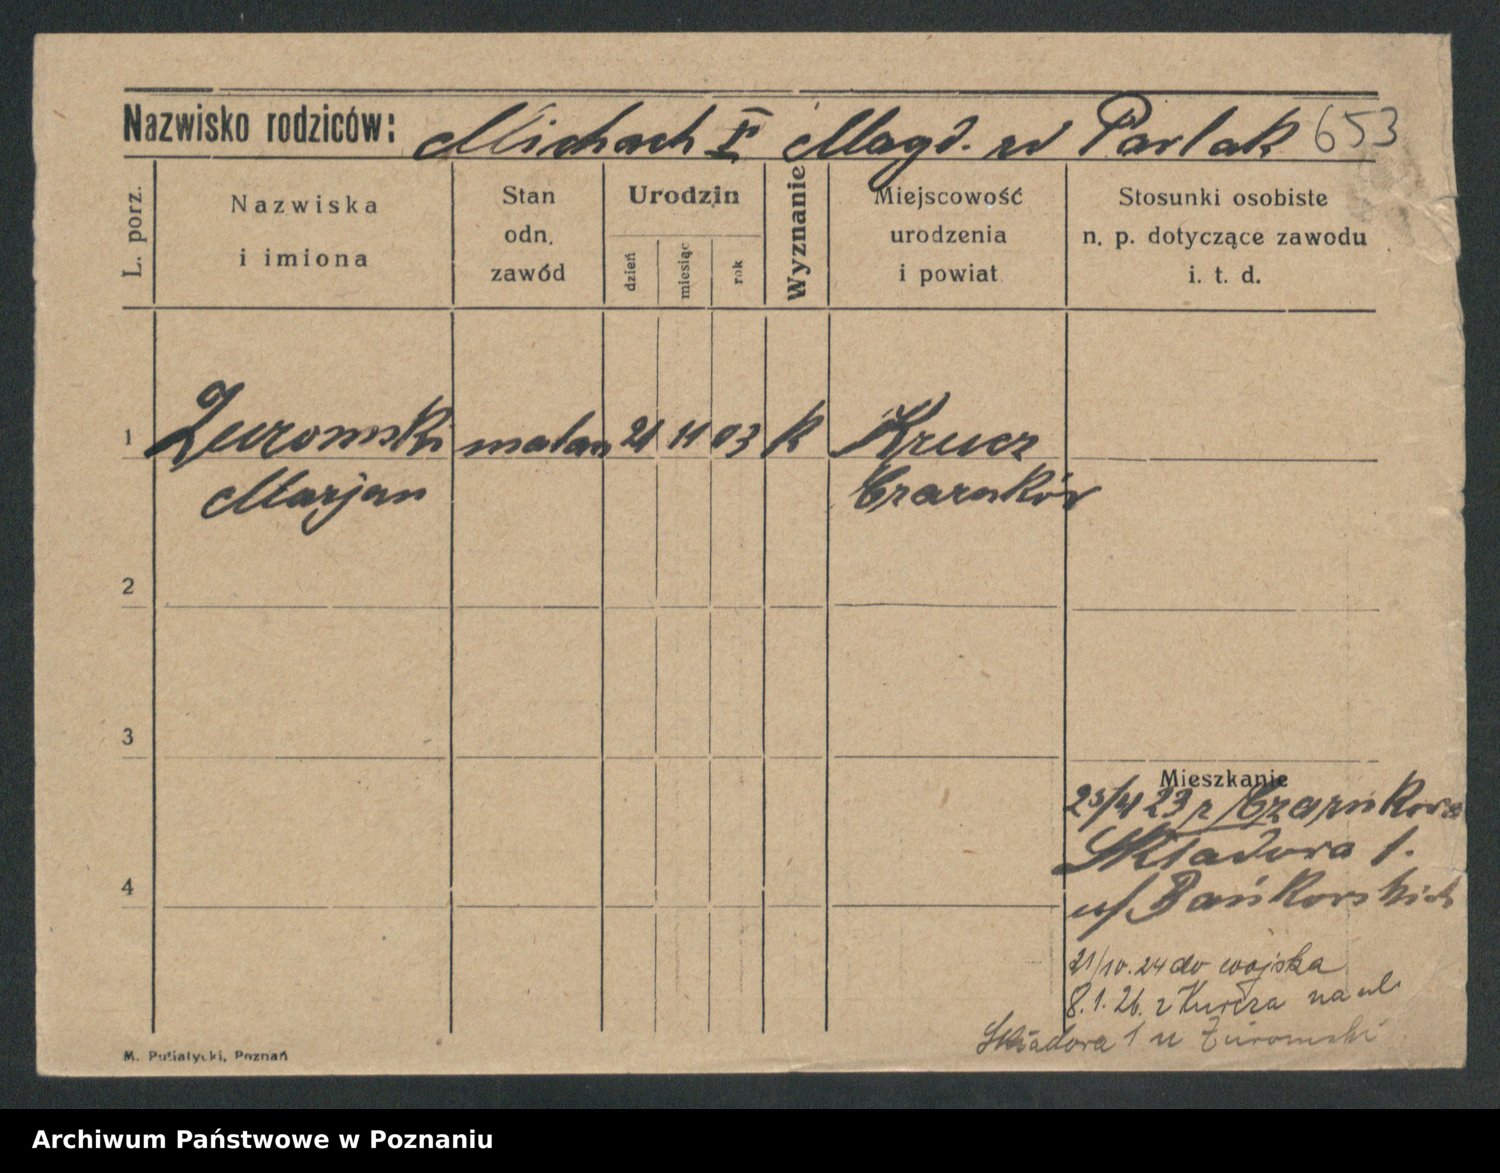 Nazwisko rodziców: Michach I Magd. w Parlak 653
L. porz.
Nazwiska i imiona
Stan odn. zawód
Urodzin
dzień
miesiąc
rok
Wyznanie
Miejscowość urodzenia i powiat
Stosunki osobiste n. p. dotyczące zawodu i. t. d.
1 Żuromski malarz 21 11 03 k Krucz
Marjan Czarnków
2
3
Mieszkanie
23/4 23 z Czarnkowa
Składowa 1.
4
u/ Bańkowskich
21/10.24 do wojska
8.1.26. z Kurcza na ul.
Składowa 1 u Żuromski
M. Putiatycki, Poznań
Archiwum Państwowe w Poznaniu